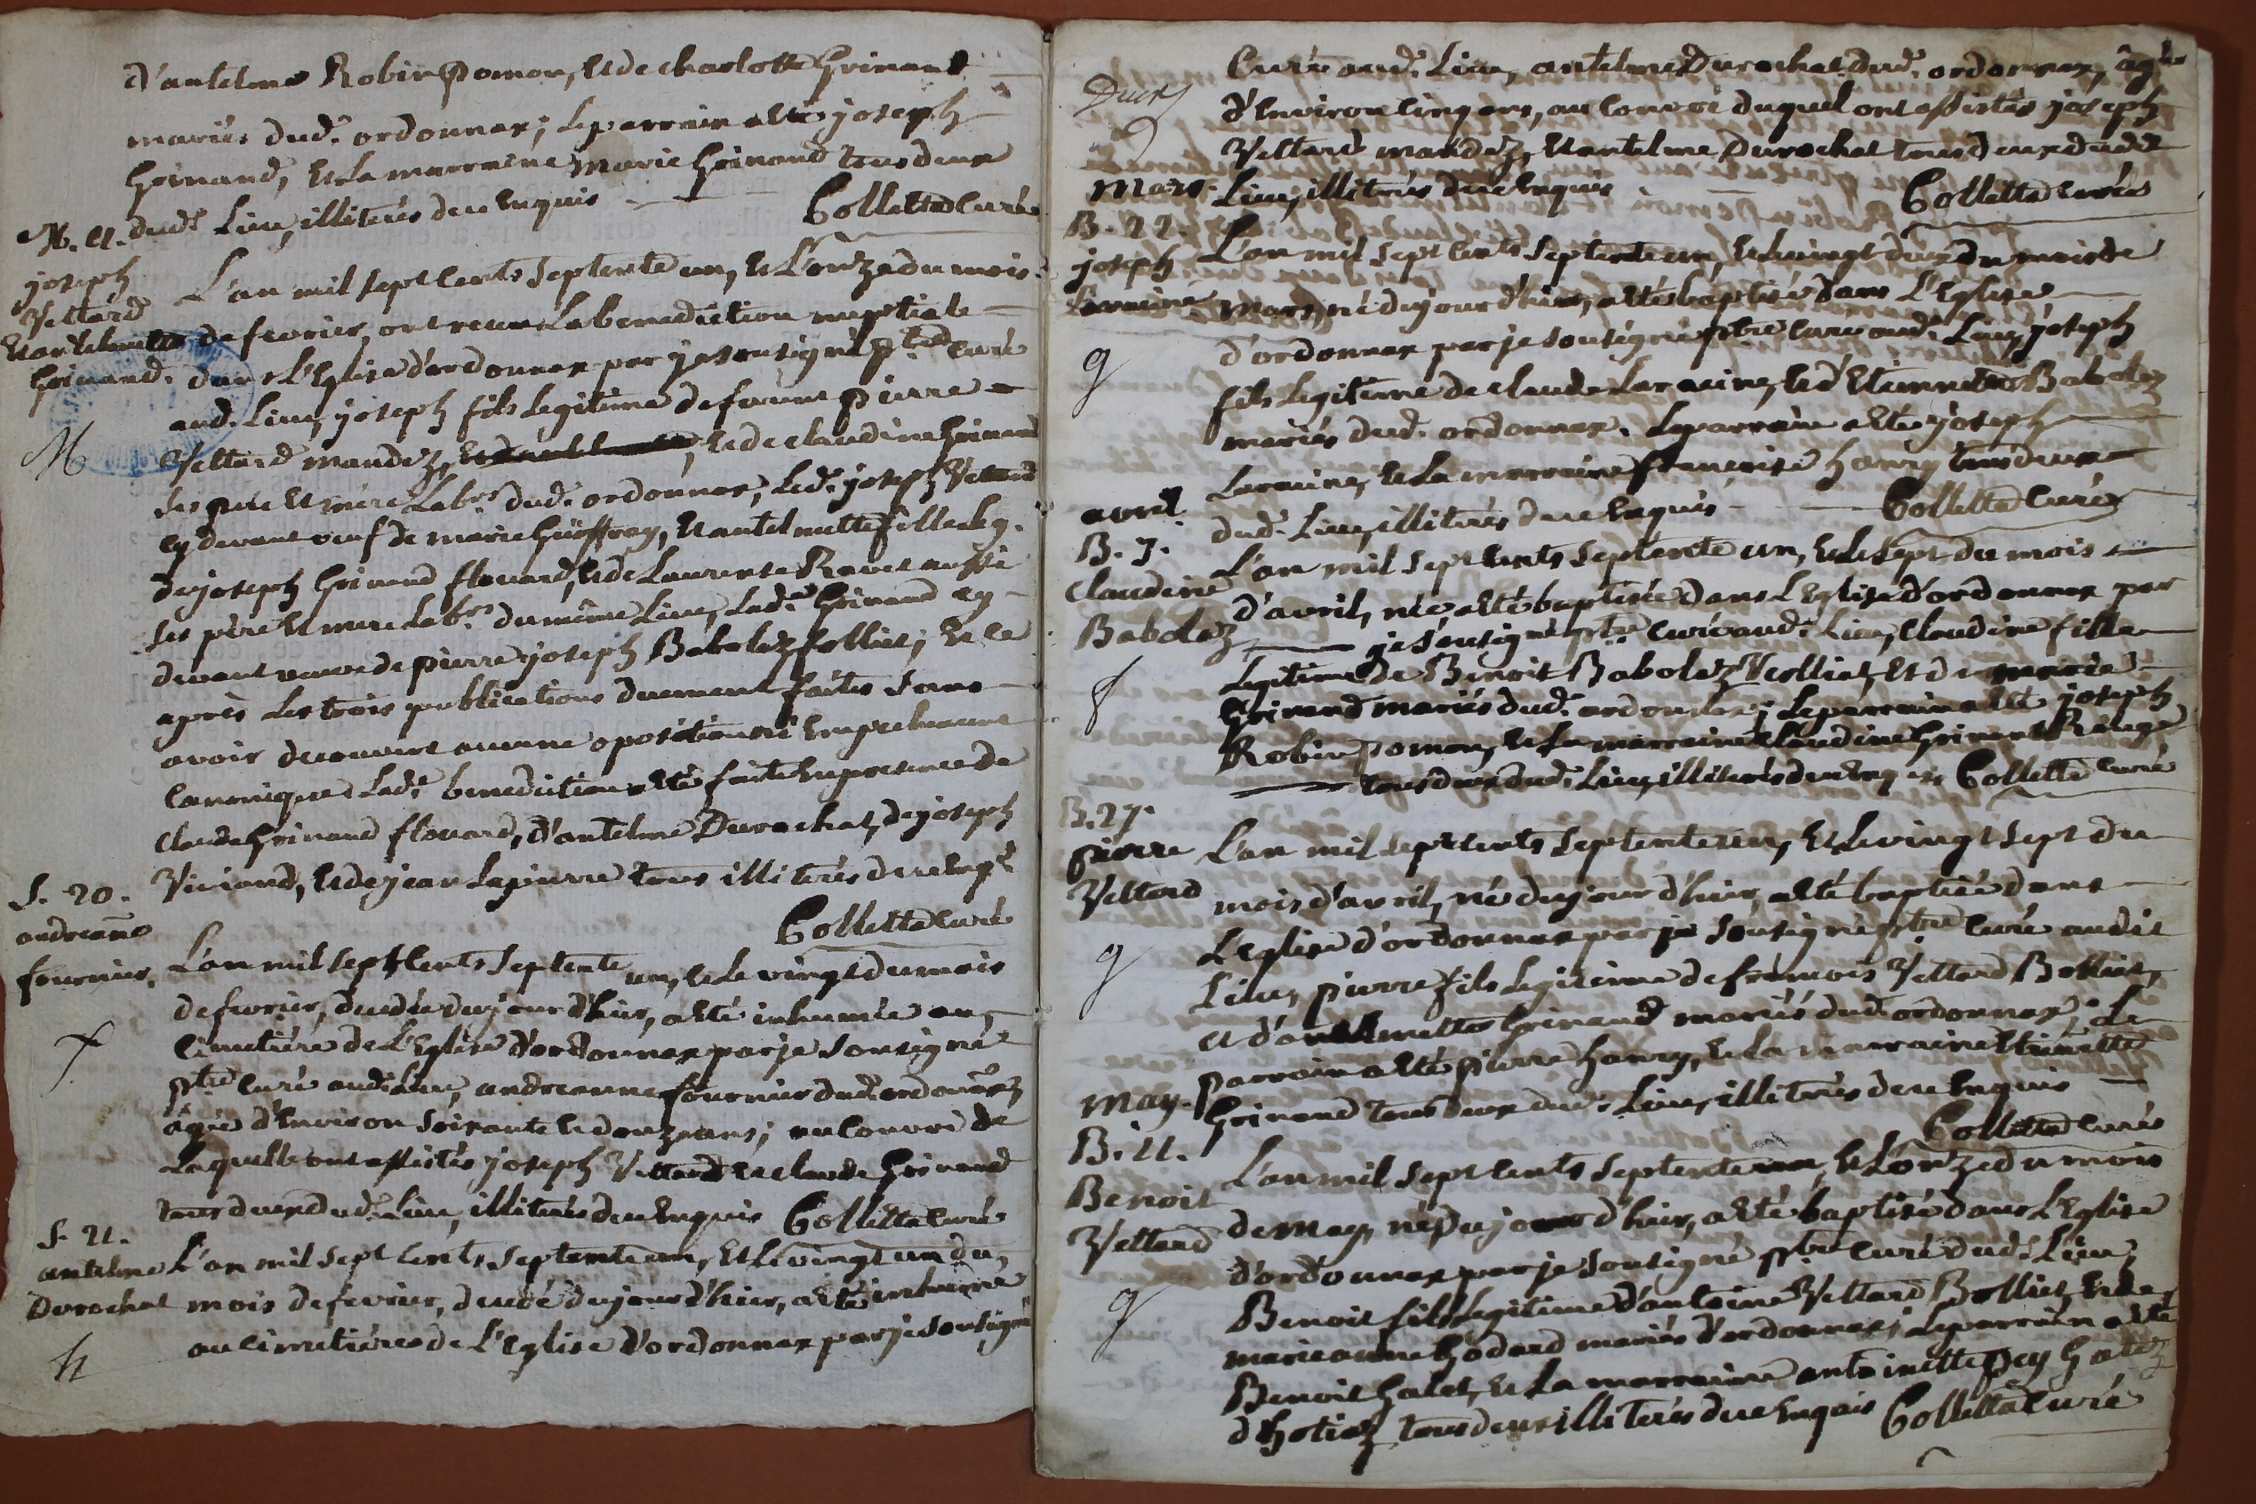 d'antelme Robin pomon, et de charlotte Grinand
mariés dud. ordonnax; le parrain a été joseph
Grinand, et la marraine Marie Grinand tous deux
dud. Lieu, illiterés de ce Enquis Colletta Curé
M. 11.
joseph
Vettard
et antelmette
Grinand.
L'an mil sept cents septente un, et L'onze du mois
de fevrier, ont recu La benediction nuptiale
dans L'Eglise d'ordonnax par je sousigné ptre curé
aud. Lieu, joseph fils Legitime de feu pierre
Vettard mandez, et de claudine Grinand
ses père et mère Labrs dud. ordonnax, Led. joseph Vettard
cy devant veuf de marie Guiffray, et antelmette fille leg.
de joseph Grinand flouard, et de Laurence Ravet aussi
ses père et mere Labrs du même Lieu, Lad. Grinand cy
devant veuve de pierre joseph Babolez folliet; et ce
après Les trois publications duement faites sans
avoir decouvert aucune oposition ni Empechement
canonique; Lad. benediction a été faite En presence de
claude Grinand flouard, d'antelme Durochat, de joseph
Viviand, et de jean Lapierre tous illiterés de ce Enqs
Colletta Curé
S. 20.
andreanne
fournier.
L'an mil sept cents septente un, et Le vingt du mois
de fevrier, decedée du jour d'hier, a été inhumée au
cimetiére de L'Eglise d'ordonnax par je sousigné
ptre curé aud. Lieu, andreanne fournier dud. ordonnax
âgée d'Environ soixante et douze ans; au convoi de
Laquelle ont assistés joseph Vettard et claude Grinand
tous deux dud. Lieu, illiterés de ce Enquis Colletta Curé
S. 21.
antelme
Durochat
L'an mil sept cents septente un, et Le vingt un du
mois de fevrier, decedé du jour d'hier, a été inhumé
au cimetiére de L'Eglise d'ordonnax par je sousigné
Curé aud. Lieu, antelme Durochat dud. ordonnax, âgé
d'Environ cinq ans, au convoi duquel ont assistés joseph
Vettard mandez, et antelme Durochat tous deux dud.
Lieu, illiterés de ce Enquis Colletta Curé
Mars.
B. 22.
joseph
Laracine
L'an mil sept cents septente un, et Le vingt deux du mois de
Mars, né du jour d'hier, a été baptisé dans L'Eglise
d'ordonnax par je sousigné ptre curé aud. Lieu, joseph
fils Legitime de claude Laracine, et d'Etiennette Babolez
mariés dud. ordonnax. Le parrain a été joseph
Laracine, et La marraine francoise hanry tous deux
dud. Lieu, illiterés de ce Enquis Colletta Curé
avril
B. 7.
Claudine
Babolaz
L'an mil sept cents septente un, et Le sept du mois
d'avril, née, a été baptisée dans L'Eglise d'ordonnax par
je sousigné ptre curé aud. Lieu, Claudine fille
Legitime de Benoit Babolez Veolliet, et de marie
Grinand mariés dud. ordonnax; Le parrain a été joseph
Robin pomon, et La marraine Claudine Grinand
tous deux dud. Lieu, illiterés de ce Enquis Colletta Curé
B. 27.
pierre
Vettard
L'an mil sept cents septente un, et Le vingt sept du
mois d'avril, né du jour d'hier, a été baptisé dans
L'Eglise d'ordonnax par je sousigné ptre curé audit
Lieu, pierre fils Legitime de françois Vettard Bolliet,
et d'antelmette Grinand mariés dud. ordonnax; Le
parrain a été pierre hanry, et La marraine Etiennette
Grinand tous deux dud. Lieu, illiterés de ce Enquis
Colletta Curé
may.
B. 11.
Benoit
Vettard
L'an mil sept cents septente un, et L'onze du mois
de may, né du jour d'hier, a été baptisé dans L'Eglise
d'ordonnax par je sousigné ptre curé dud. Lieu,
Benoit fils Legitime d'antoine Vettard Bolliet, et de
marie anne Godard mariés d'ordonnax; Le parrain a été
Benoit Galet, et La marraine antoinette
d'hotiaz tous deux illiterés de ce Enquis Colletta Curé